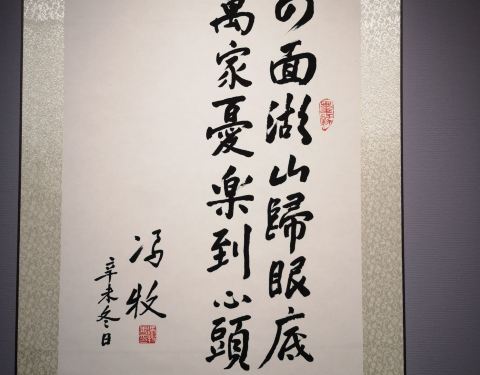 四面湖山歸眼底
萬家憂楽到心頭
辛未冬日
冯牧